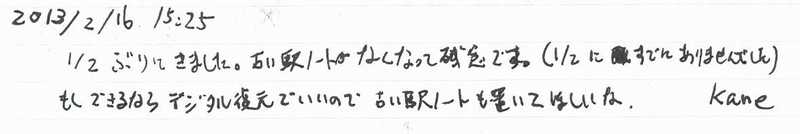 2013/2/16 15:25
1/2 ぶりにきました。古い駅ノートがなくなって残念です。(1/2 にすでにありませんでした)
もしできるなら デジタル復元でいいので 古い駅ノートも置いてほしいな. Kane